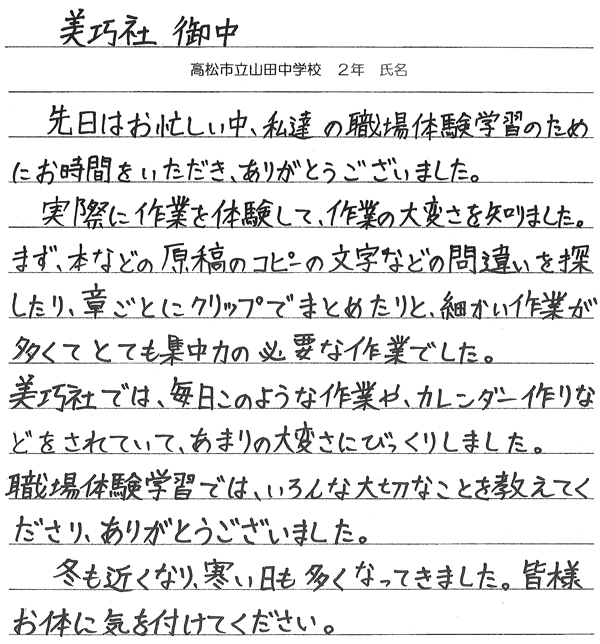 美巧社 御中
高松市立山田中学校 2年 氏名
先日はお忙しい中、私達の職場体験学習のため
にお時間をいただき、ありがとうございました。
実際に作業を体験して、作業の大変さを知りました。
まず、本などの原稿のコピーの文字などの間違いを探
したり、章ごとにクリップでまとめたりと、細かい作業が
多くてとても集中力の必要な作業でした。
美巧社では、毎日このような作業や、カレンダー作りな
どをされていて、あまりの大変さにびっくりしました。
職場体験学習では、いろんな大切なことを教えてく
ださり、ありがとうございました。
冬も近くなり、寒い日も多くなってきました。皆様
お体に気を付けてください。